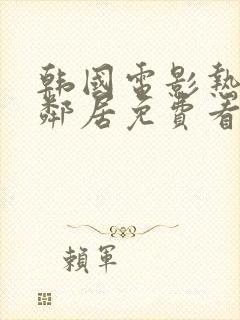 韩國電影熱
鄰居免費看
賴軍